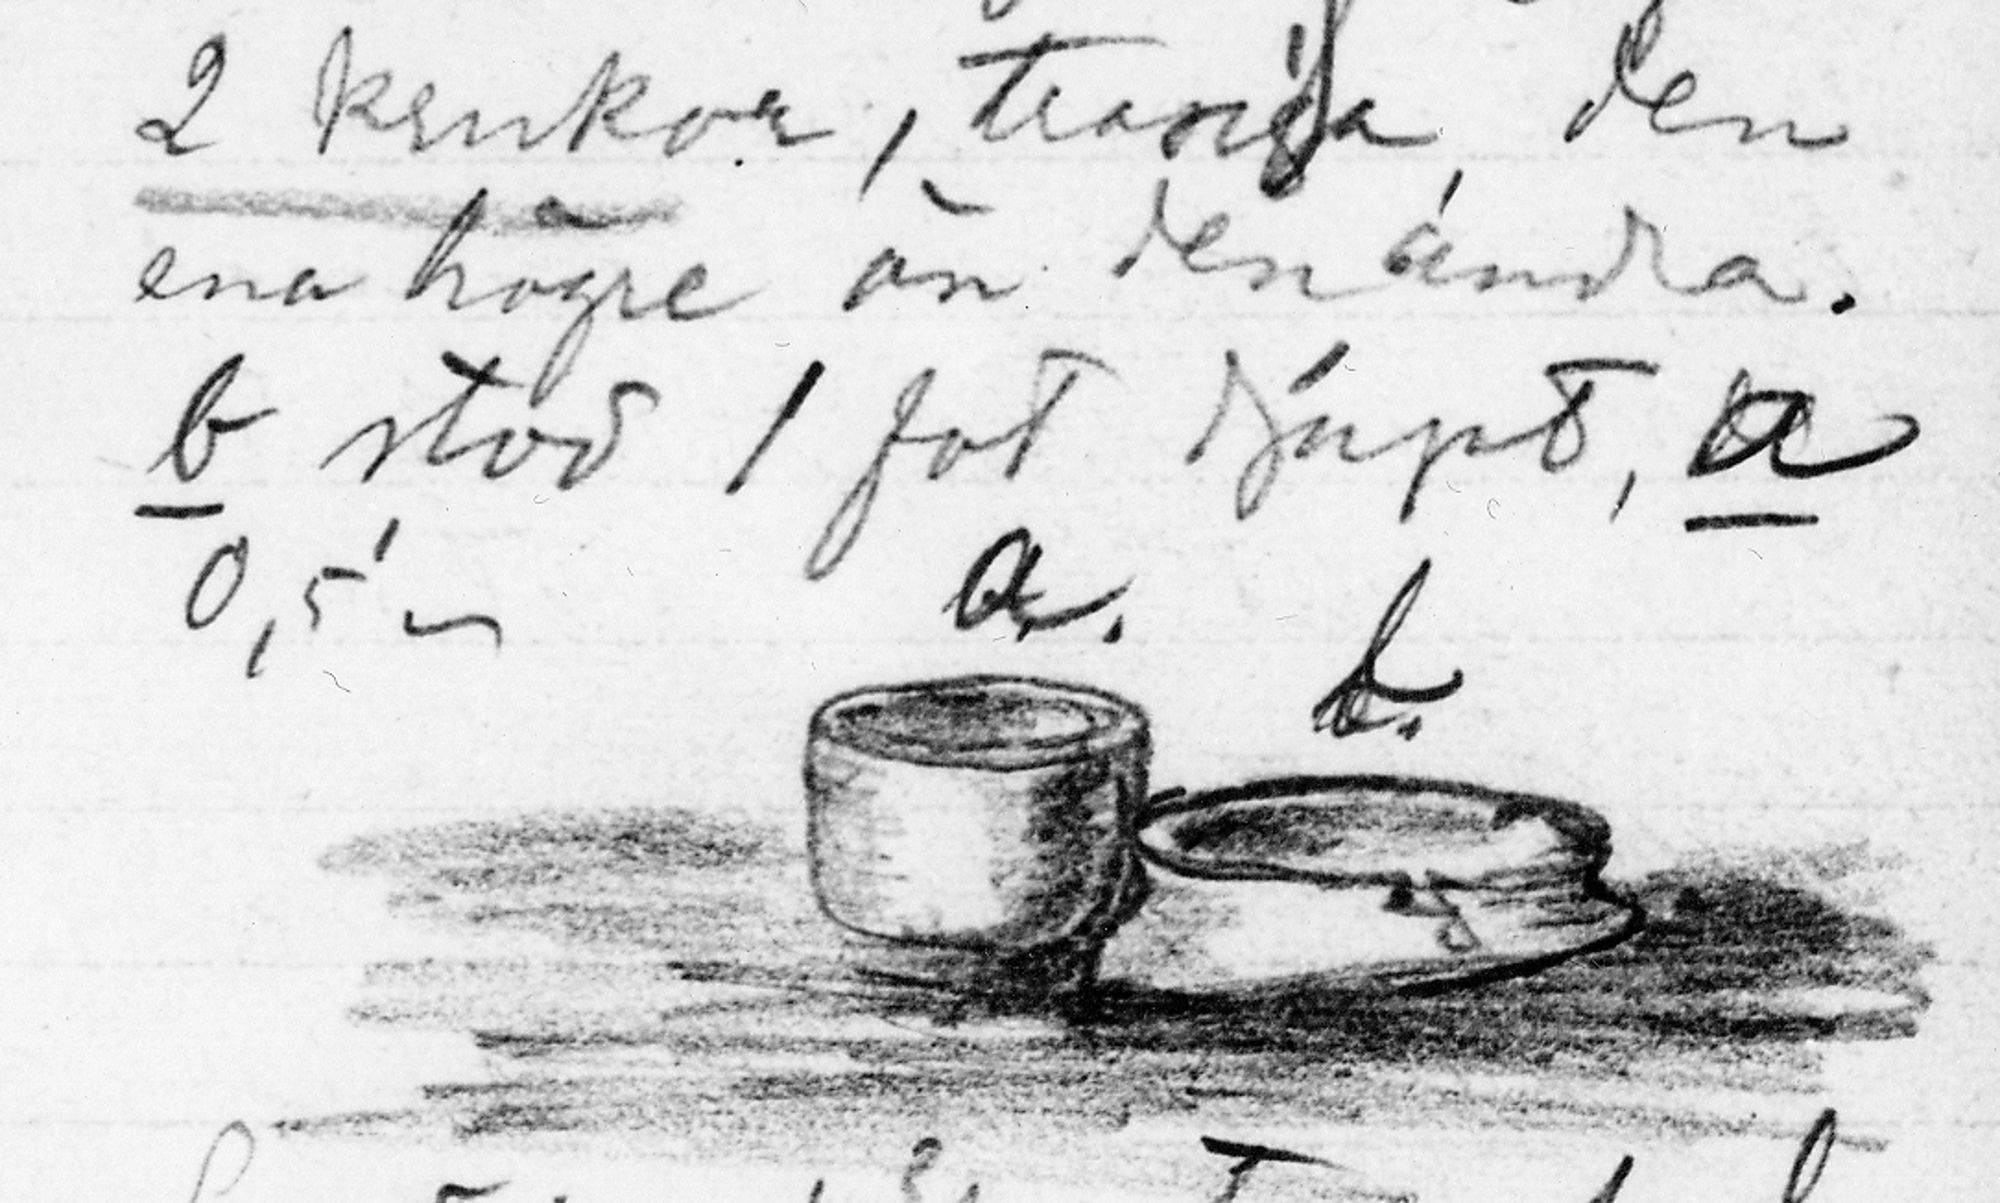 2 krukor, trasiga den
ena högre än den andra.
b stod 1 fot djupt, a
0,5 m
a.
b.